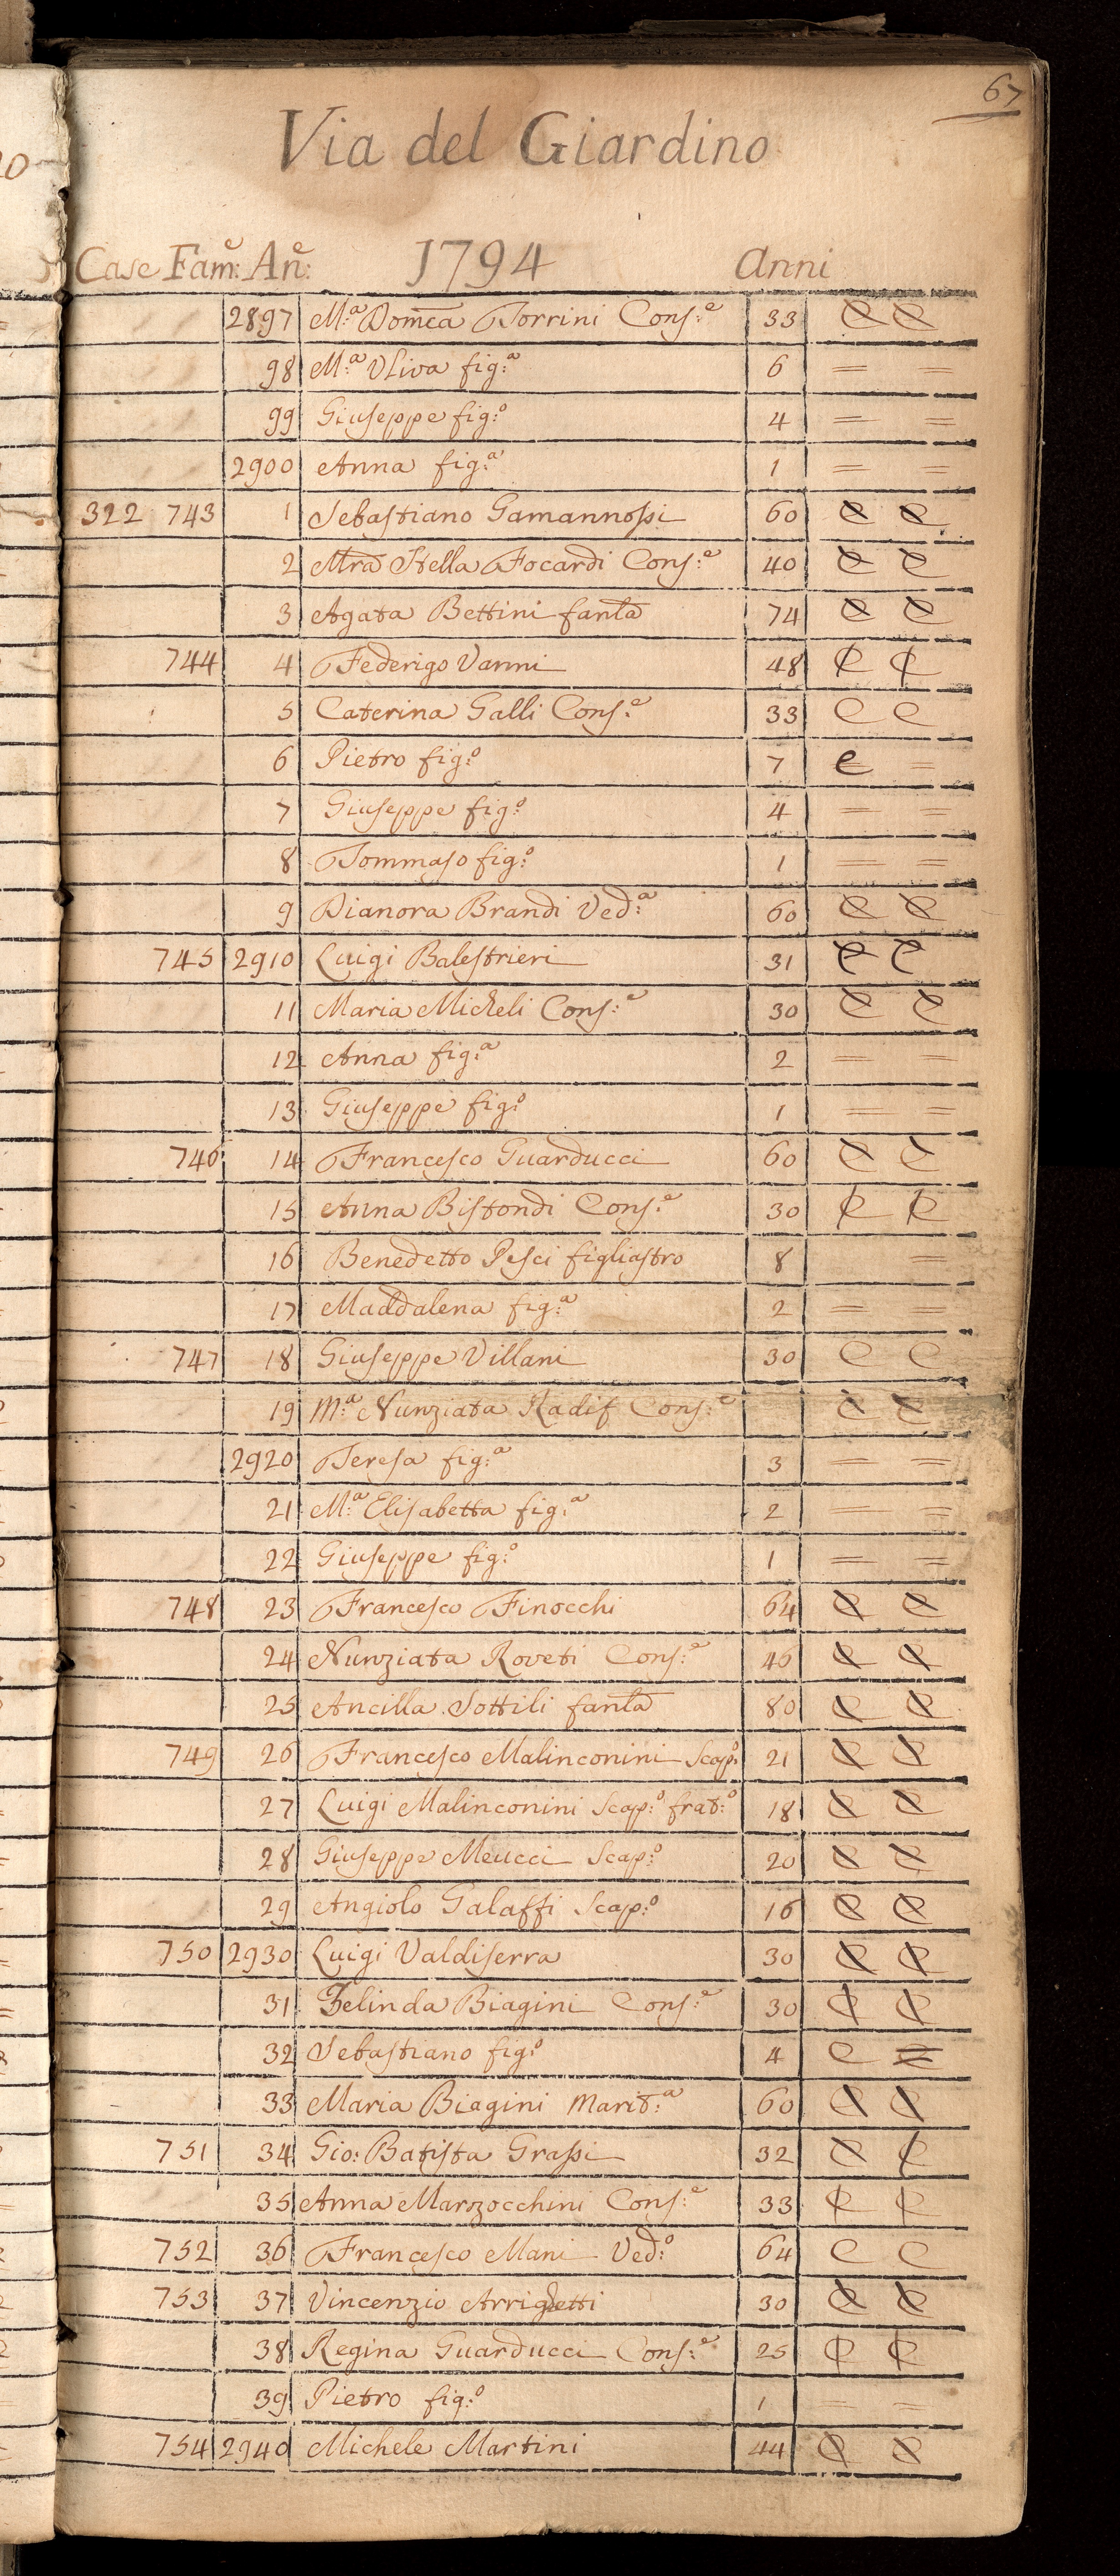 67
Via del Giardino
Case Fam:e An:e 1794 Anni
2897 M:a Dom:ca Torrini Cons:e 33 C C
98 M:a Uliva fig:a 6 = =
99 Giuseppe fig:o 4 = =
2900 Anna fig:a 1 = =
322 743 1 Sebastiano Gamannossi 60 C C
2 M:ra Stella Focardi Cons:e 40 C C
3 Agata Bettini fant:a 74 C C
744 4 Federigo Vanni 48 C C
5 Caterina Galli Cons:e 33 C C
6 Pietro fig:o 7 C =
7 Giuseppe fig:o 4 = =
8 Tommaso fig:o 1 = =
9 Dianora Brandi Ved:a 60 C C
745 2910 Luigi Balestrieri 31 C C
11 Maria Micheli Cons:e 30 C C
12 Anna fig:a 2 = =
13 Giuseppe fig:o 1 = =
746 14 Francesco Guarducci 60 C C
15 Anna Bistondi Cons:e 30 C C
16 Benedetto Pesci figliastro 8 =
17 Maddalena fig:a 2 = =
747 18 Giuseppe Villani 30 C C
19 M:a Nunziata Radif Cons:e C C
2920 Teresa fig:a 3 = =
21 M:a Elisabetta fig:a 2 = =
22 Giuseppe fig:o 1 = =
748 23 Francesco Finocchi 64 C C
24 Nunziata Roveti Cons:e 46 C C
25 Ancilla Sottili fant:a 80 C C
749 26 Francesco Malinconini Scap:o 21 C C
27 Luigi Malinconini Scap:o frat:o 18 C C
28 Giuseppe Meucci Scap:o 20 C C
29 Angiolo Galaffi Scap:o 16 C C
750 2930 Luigi Valdiserra 30 C C
31 Zelinda Biagini Cons:e 30 C C
32 Sebastiano fig:o 4 C =
33 Maria Biagini Marit:a 60 C C
751 34 Gio: Batista Grassi 32 C C
35 Anna Marzocchini Cons:e 33 C C
752 36 Francesco Mani Ved:o 64 C C
753 37 Vincenzio Arrighetti 30 C C
38 Regina Guarducci Cons:e 25 C C
39 Pietro fig:o 1 = =
754 2940 Michele Martini 44 C C